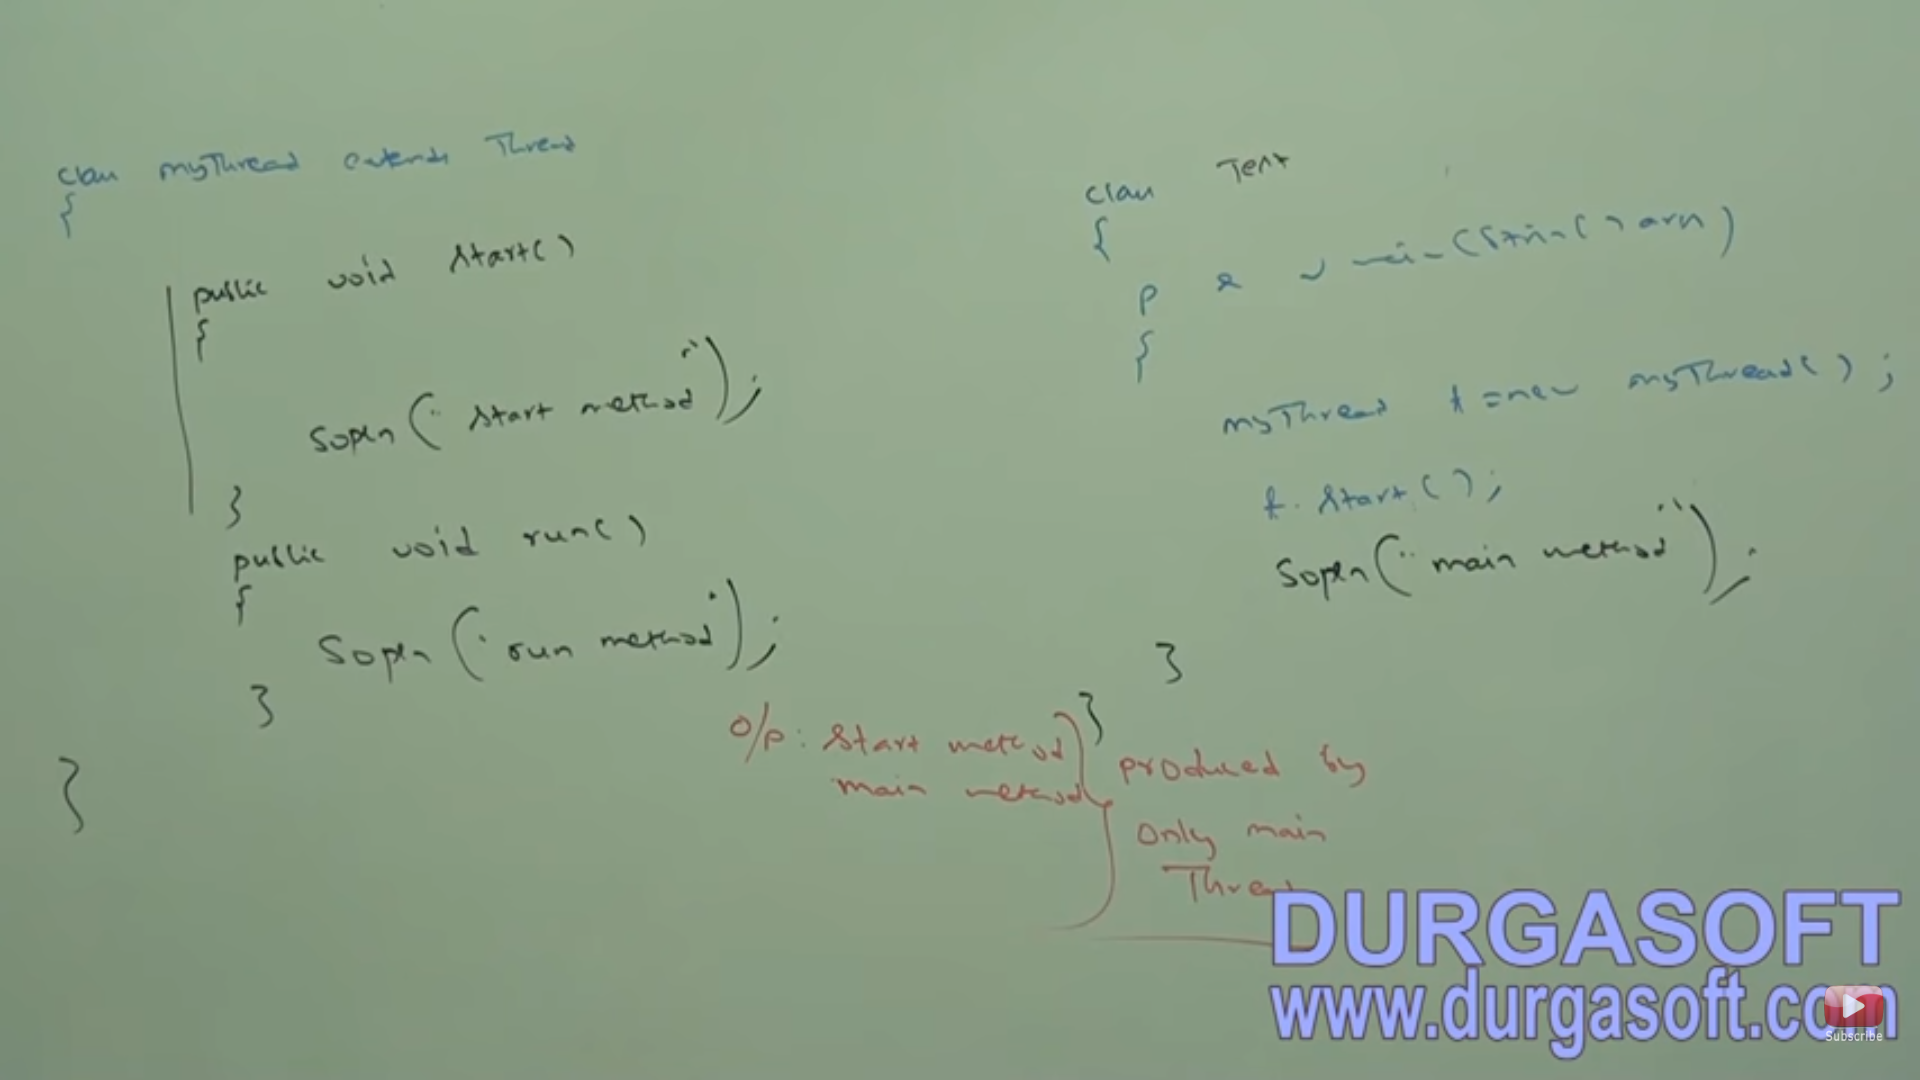 class MyThread extends Thread
{
public void start()
{
Sopln("start method");
}
public void run()
{
Sopln("run method");
}
}
class Test
{
p s v main(String[] args)
{
MyThread t = new MyThread();
t.start();
Sopln("main method");
}
}
O/P: start method
main method
produced by
only main
Thread
DURGASOFT
www.durgasoft.com
Subscribe